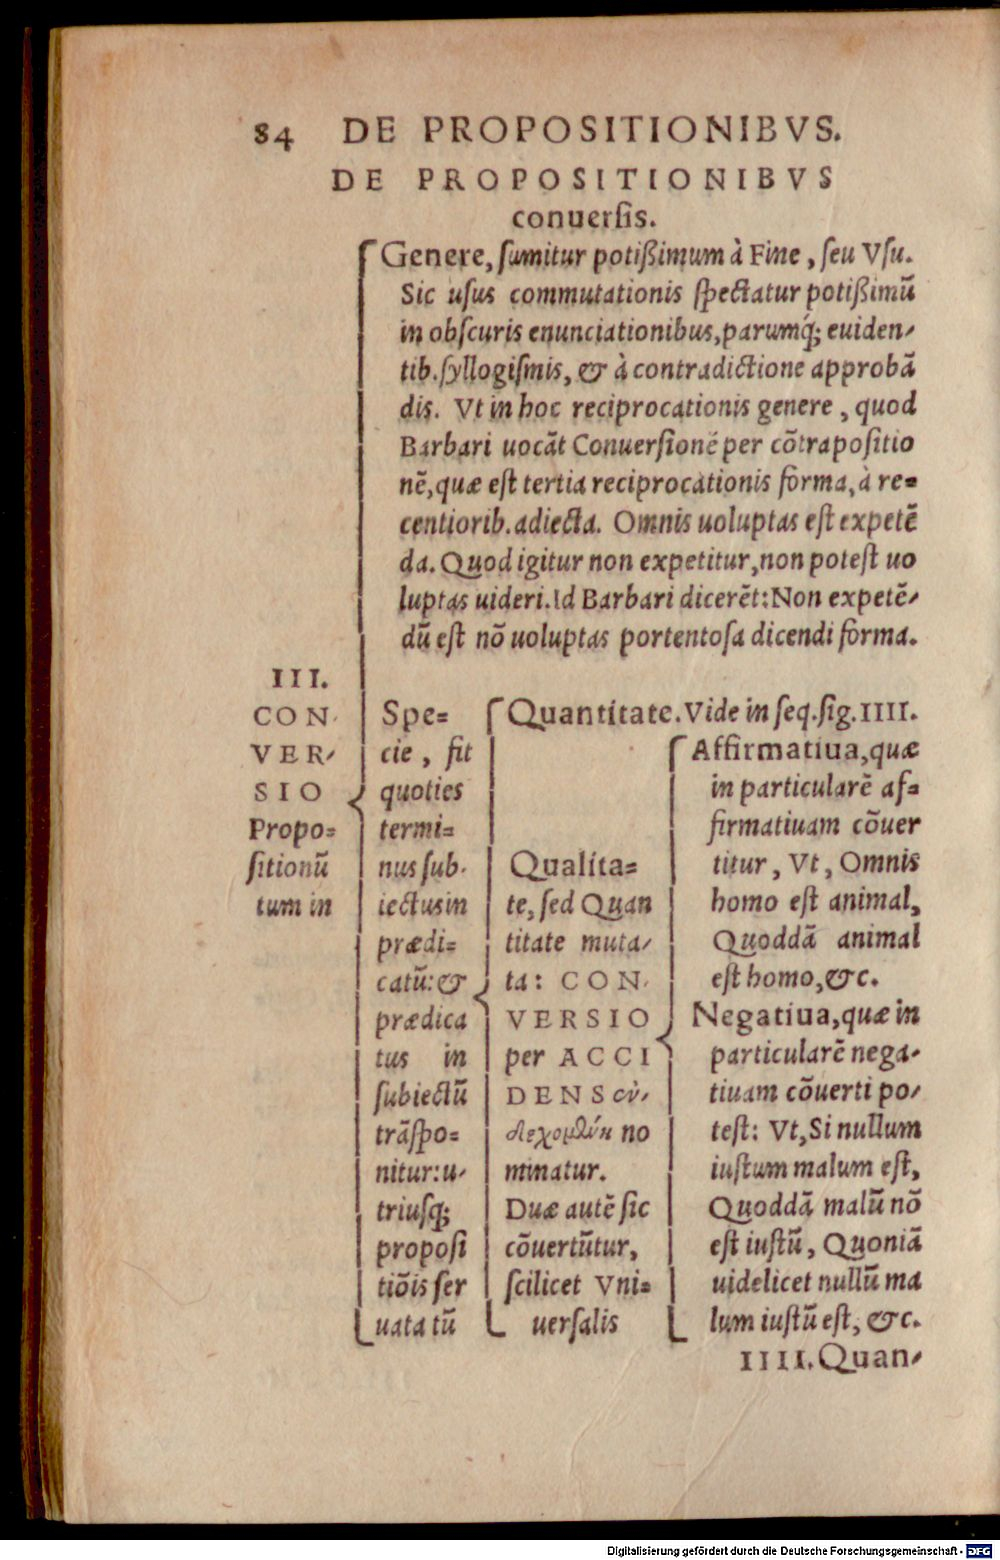 84 DE PROPOSITIONIBVS.
DE PROPOSITIONIBVS
conuerſis.
Genere, ſumitur potißimum à Fine, ſeu Vſu.
Sic uſus commutationis ſpectatur potißimũ
in obſcuris enunciationibus, parumq́; euiden-
tib. ſyllogiſmis, & à contradictione approbã
dis. Vt in hoc reciprocationis genere, quod
Barbari uocãt Conuerſionẽ per cõtrapoſitio
nẽ, quæ eſt tertia reciprocationis forma, à re=
centiorib. adiecta. Omnis uoluptas eſt expetẽ
da. Quod igitur non expetitur, non poteſt uo
luptas uideri. Id Barbari dicerẽt: Non expetẽ-
dũ eſt nõ uoluptas portentoſa dicendi forma.
III.
CON-
VER-
SIO
Propo=
ſitionũ
tum in
Spe=
cie, fit
quoties
termi=
nus ſub-
iectus in
prædi=
catũ: &
prædica
tus in
ſubiectũ
trãſpo=
nitur: u-
triuſq;
propoſi
tiõis ſer
uata tũ
Quantitate. Vide in ſeq. fig. IIII.
Qualita=
te, ſed Quan
titate muta-
ta: CON-
VERSIO
per ACCI
DENS
no
minatur.
Duæ autẽ ſic
cõuertũtur,
ſcilicet Vni=
uerſalis
Affirmatiua, quæ
in particularẽ af=
firmatiuam cõuer
titur, Vt, Omnis
homo eſt animal,
Quoddã animal
eſt homo, &c.
Negatiua, quæ in
particularẽ nega-
tiuam cõuerti po-
teſt: Vt, Si nullum
iuſtum malum eſt,
Quoddã malũ nõ
eſt iuſtũ, Quoniã
uidelicet nullũ ma
lum iuſtũ eſt, &c.
IIII. Quan-
Digitalisierung gefördert durch die Deutsche Forschungsgemeinschaft - DFG